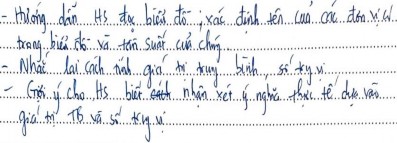 - Hướng dẫn HS đọc biểu đồ, xác định tên của các đơn vị
trong biểu đồ và tần suất của chúng.
- Nhắc lại cách tính giá trị trung bình, số trung vị
- Gợi ý cho HS biết nhận xét ý nghĩa thực tế dựa vào
giá trị TB và số trung vị